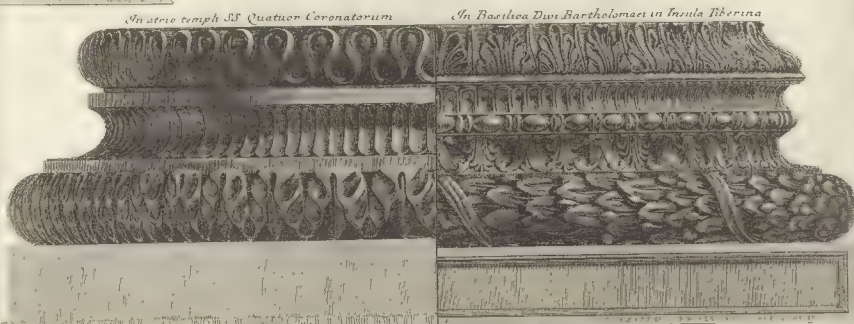 In atrio templi SS Quatuor Coronatorum
In Basilica Divi Bartholomaei in Insula Tiberina